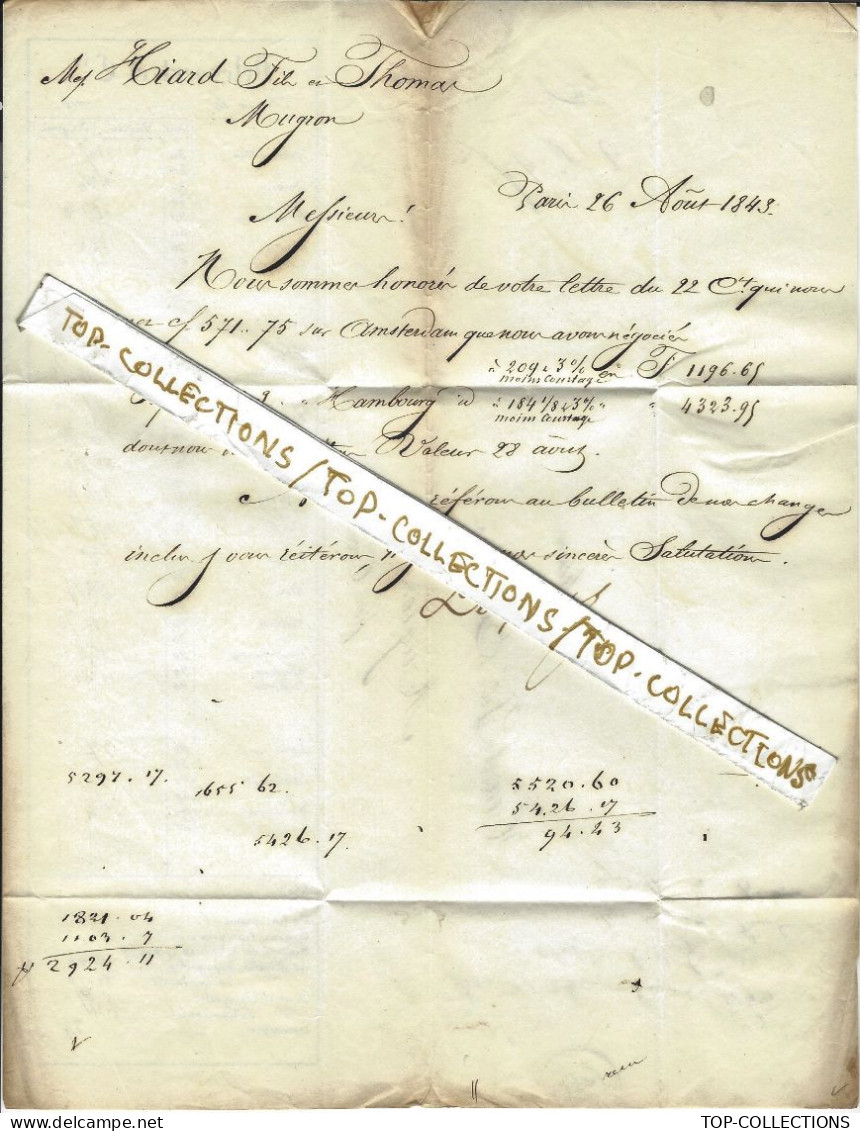 Mes. Hiard Fils et Thomas
Mugron
Paris 26 Août 1843.
Messieurs!
Nous sommes honorés de votre lettre du 22 Ct. qui nous
571.. 75 sur Amsterdam que nous avons négociés
à 209 & 3% en F 1196.65
moins Courtage
Hambourg à 184 1/8 & 3% " " 4323.95
moins Courtage
dont nous Valeur 28 août.
référons au bulletin de nos changes
inclus & vous réitérons, nos sincères Salutations.
TOP-COLLECTIONS / TOP-COLLECTIONS / TOP-COLLECTIONS
5297. 17. 1655 62. 5520. 60
5426. 17
5426. 17. 94. 43
1821. 04
1103. 7
2924. 11
TOP-COLLECTIONS